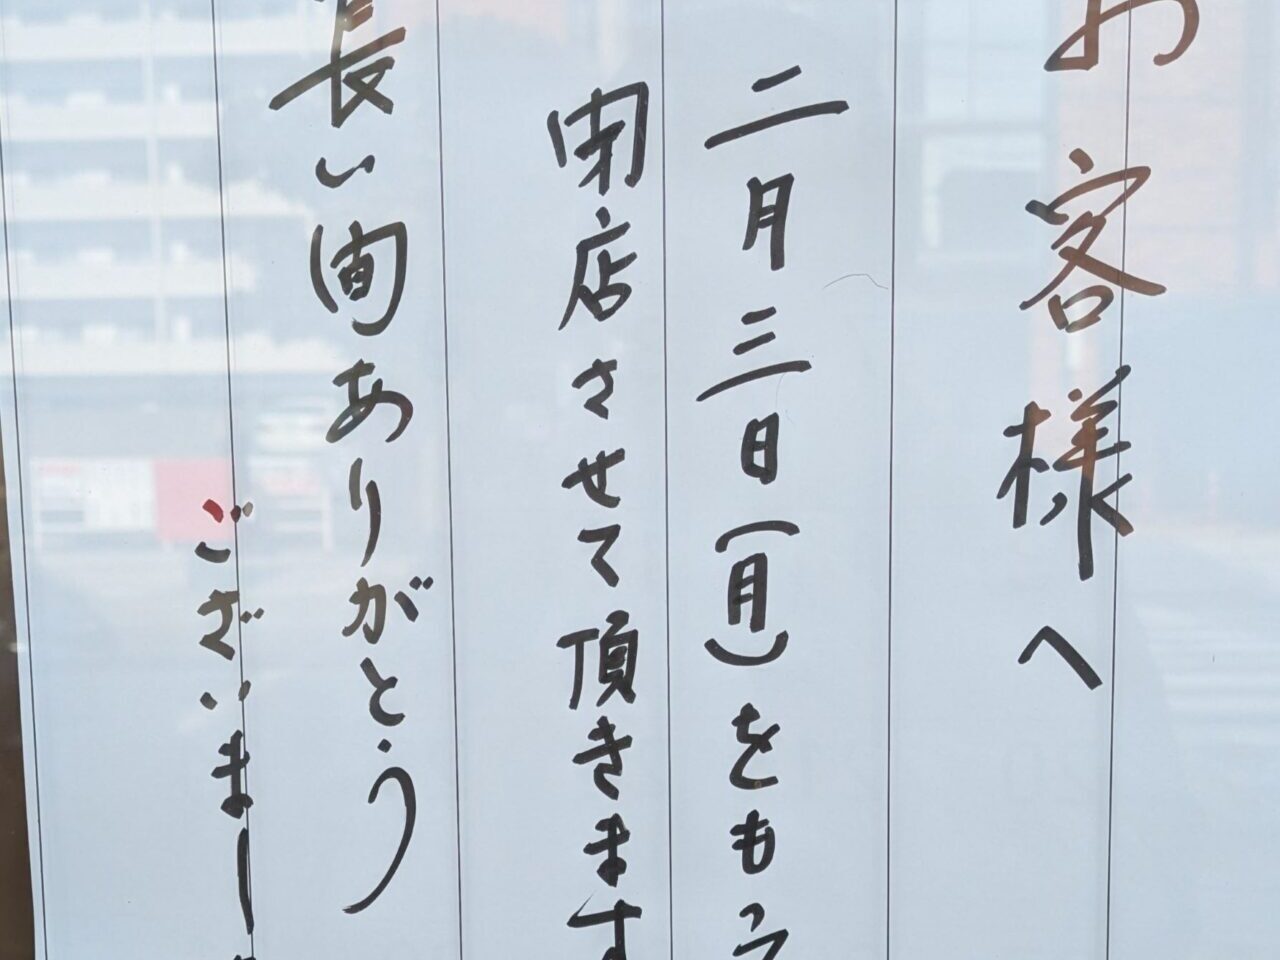 お客様へ
二月三日(月)をもっ
閉店させて頂きます
長い間ありがとう
ございまし